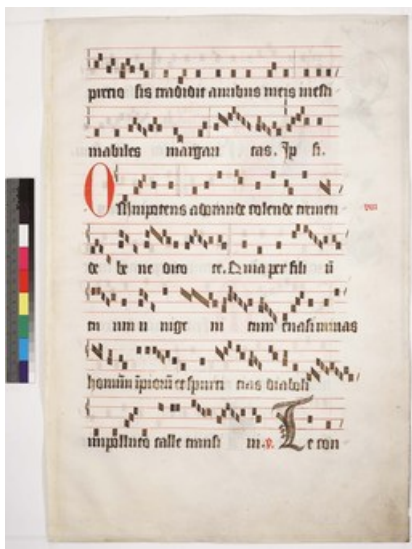 precio sis tradidit auribus meis inesti
mabiles margari tas. Ip si.
Omnipotens adorande colende tremen
de be ne dico te. Quia per filiu
tu um u nige ni tum euasi minas
hominu impioru et spurci cias diaboli
impolluto calle transi ui. v. Te con